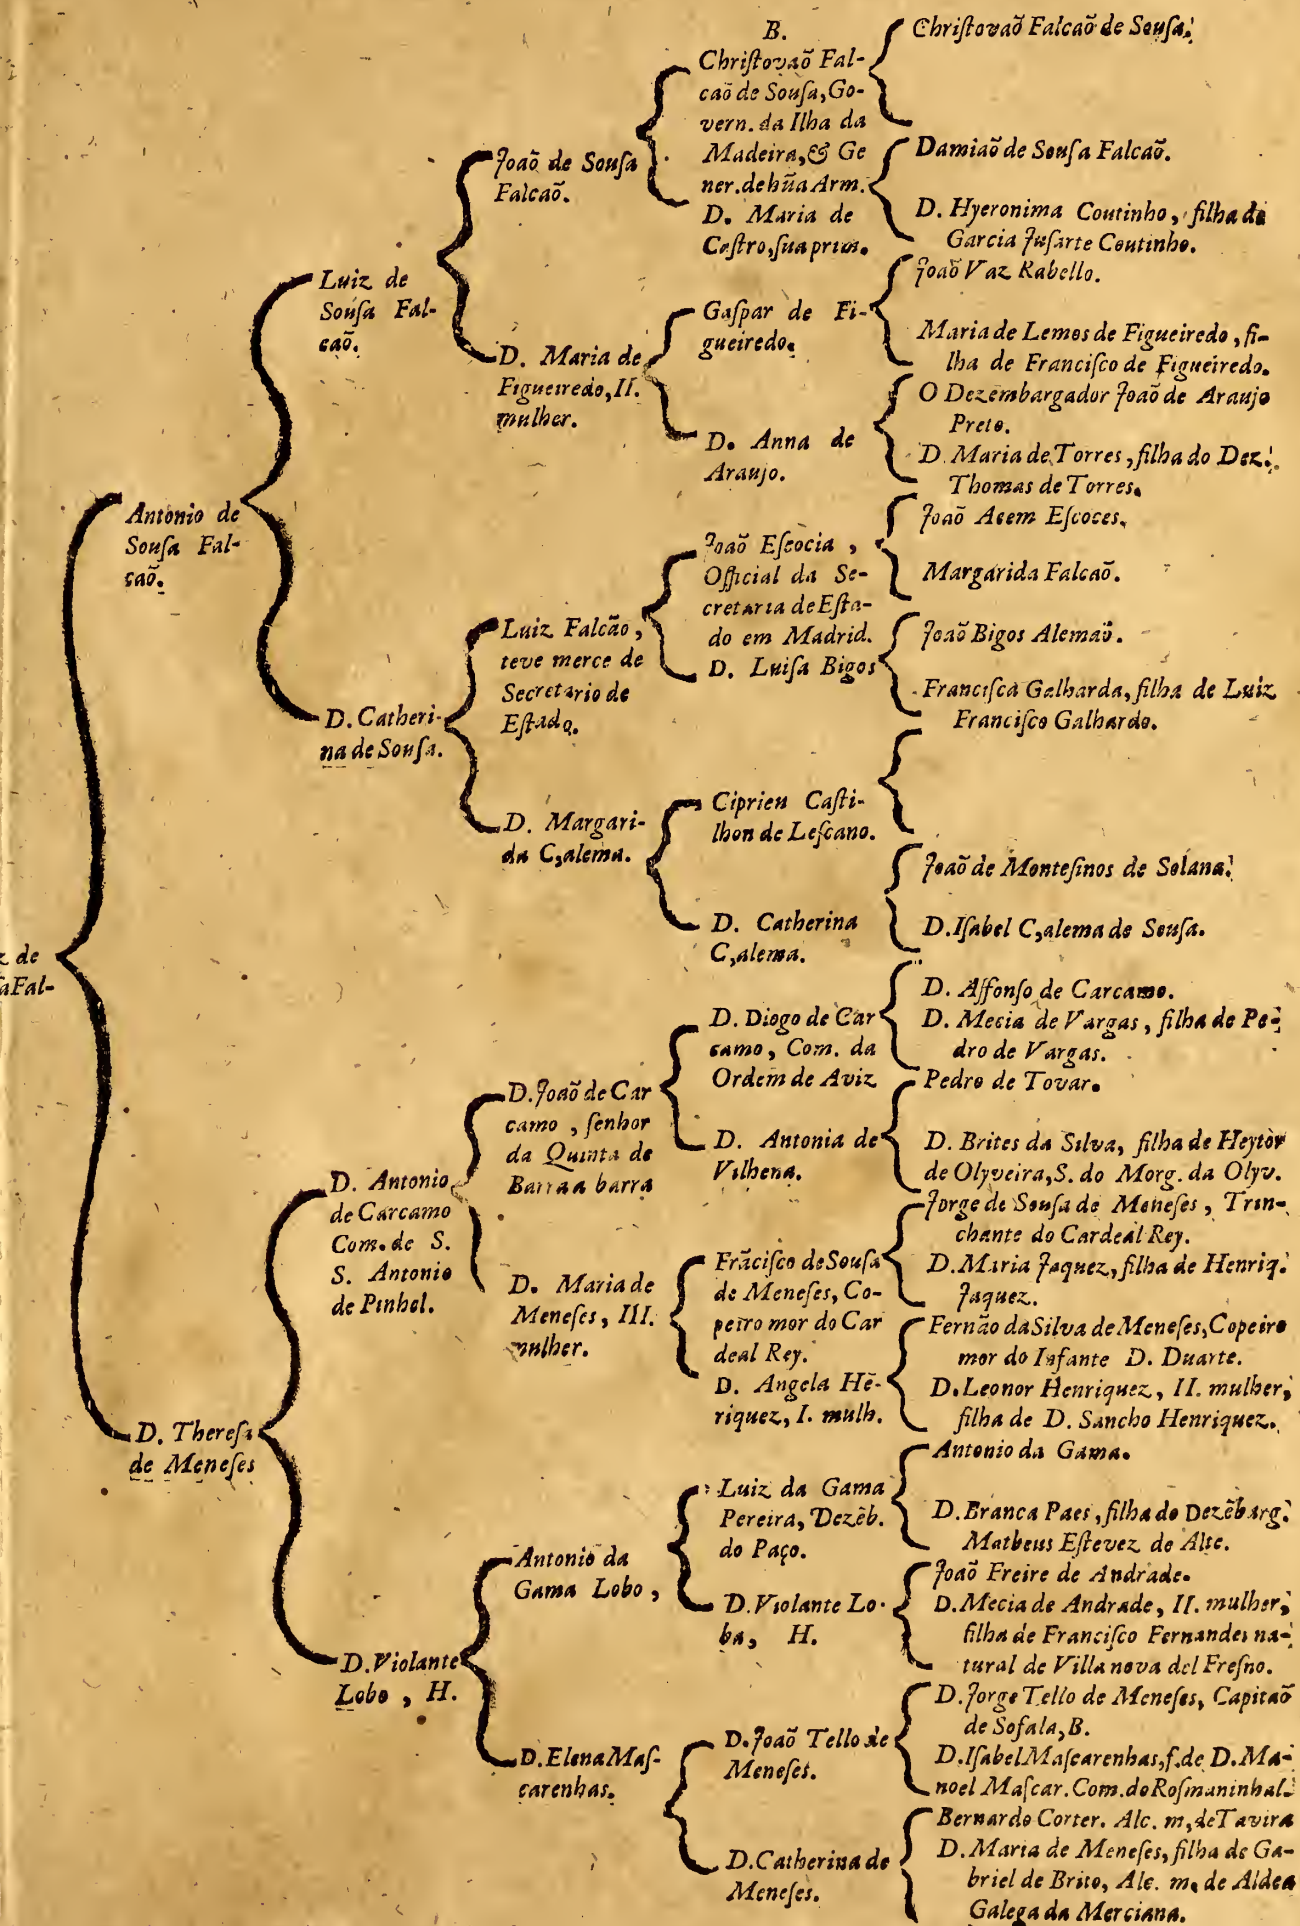 z de
ſaFal-
Antonio de
Souſa Fal-
caõ.
D. Thereſa
de Meneſes
Luiz de
Souſa Fal-
caõ.
D. Catheri-
na de Souſa.
D. Antonio
de Carcamo
Com. de S.
S. Antonio
de Pinhel.
D. Violante
Lobo , H.
Joaõ de Souſa
Falcaõ.
D. Maria de
Figueiredo, II.
mulher.
Luiz Falcão ,
teve merce de
Secretario de
Eſtado.
D. Margari-
da C,alema.
D. Joaõ de Car
camo , ſenhor
da Quinta de
Barra a barra
D. Maria de
Meneſes , III.
mulher.
Antonio da
Gama Lobo ,
D. Elena Maſ-
carenhas.
B.
Chriſtovaõ Fal-
caõ de Souſa, Go-
vern. da Ilha da
Madeira, & Ge
ner. de hũa Arm.
D. Maria de
Caſtro, ſua prim.
Gaſpar de Fi-
gueiredo.
D. Anna de
Araujo.
Joaõ Eſcocia ,
Official da Se-
cretaria de Eſta-
do em Madrid.
D. Luiſa Bigos
Ciprien Caſti-
lhon de Leſcano.
D. Catherina
C,alema.
D. Diogo de Car
camo , Com. da
Ordem de Aviz
D. Antonia de
Vilhena.
Frãciſco de Souſa
de Meneſes, Co-
peiro mor do Car
deal Rey.
D. Angela Hẽ-
riquez, I. mulh.
Luiz da Gama
Pereira, Dezẽb.
do Paço.
D. Violante Lo-
ba, H.
D. Joaõ Tello de
Meneſes.
D. Catherina de
Meneſes.
Chriſtovaõ Falcaõ de Souſa.
Damiaõ de Souſa Falcaõ.
D. Hyeronima Coutinho, filha de
Garcia Juſarte Coutinho.
Joaõ Vaz Rabello.
Maria de Lemos de Figueiredo , fi-
lha de Franciſco de Figueiredo.
O Dezembargador Joaõ de Araujo
Preto.
D. Maria de Torres , filha do Dez.
Thomas de Torres.
Joaõ Acem Eſcoces.
Margarida Falcaõ.
Joaõ Bigos Alemaõ.
Franciſca Galharda, filha de Luiz
Franciſco Galhardo.
Joaõ de Monteſinos de Solana.
D. Iſabel C,alema de Souſa.
D. Affonſo de Carcamo.
D. Mecia de Vargas , filha de Pe-
dro de Vargas.
Pedro de Tovar.
D. Brites da Silva, filha de Heytor
de Olyveira, S. do Morg. da Olyv.
Jorge de Souſa de Meneſes , Trin-
chante do Cardeal Rey.
D. Maria Jaquez, filha de Henriq.
Jaquez.
Fernão da Silva de Meneſes, Copeiro
mor do Infante D. Duarte.
D. Leonor Henriquez , II. mulher,
filha de D. Sancho Henriquez.
Antonio da Gama.
D. Branca Paes , filha do Dezẽbarg.
Matheus Eſtevez de Alte.
Joaõ Freire de Andrade.
D. Mecia de Andrade , II. mulher,
filha de Franciſco Fernandes na-
tural de Villa nova del Freſno.
D. Jorge Tello de Meneſes, Capitaõ
de Sofala, B.
D. Iſabel Maſcarenhas, f. de D. Ma-
noel Maſcar. Com. do Roſmaninhal.
Bernardo Corter. Alc. m, de Tavira
D. Maria de Meneſes, filha de Ga-
briel de Brito, Alc. m. de Aldea
Galega da Merciana.